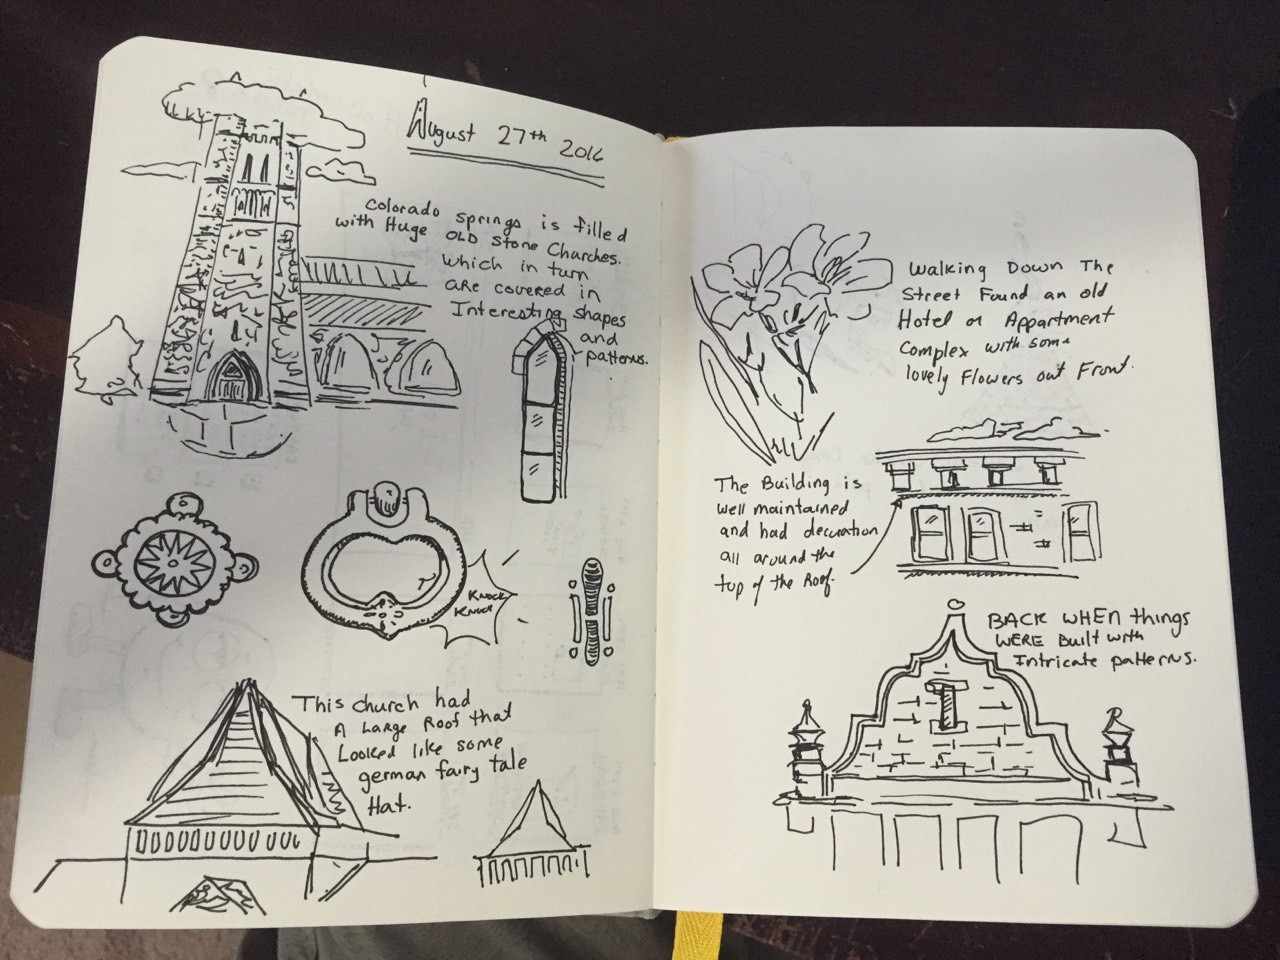 August 27th 2016
Colorado springs is filled
with Huge OLD Stone Churches.
which in turn
ARe covered in
Interesting shapes
and
patterns.
Knock
Knock
This church had
A Large Roof that
Looked like some
german fairy tale
Hat.
Walking Down The
Street Found an old
Hotel or Appartment
Complex with some
lovely Flowers out Front.
The Building is
well maintained
and had decoration
all around the
top of the Roof.
BACK WHEN things
WERE Built with
Intricate patterns.